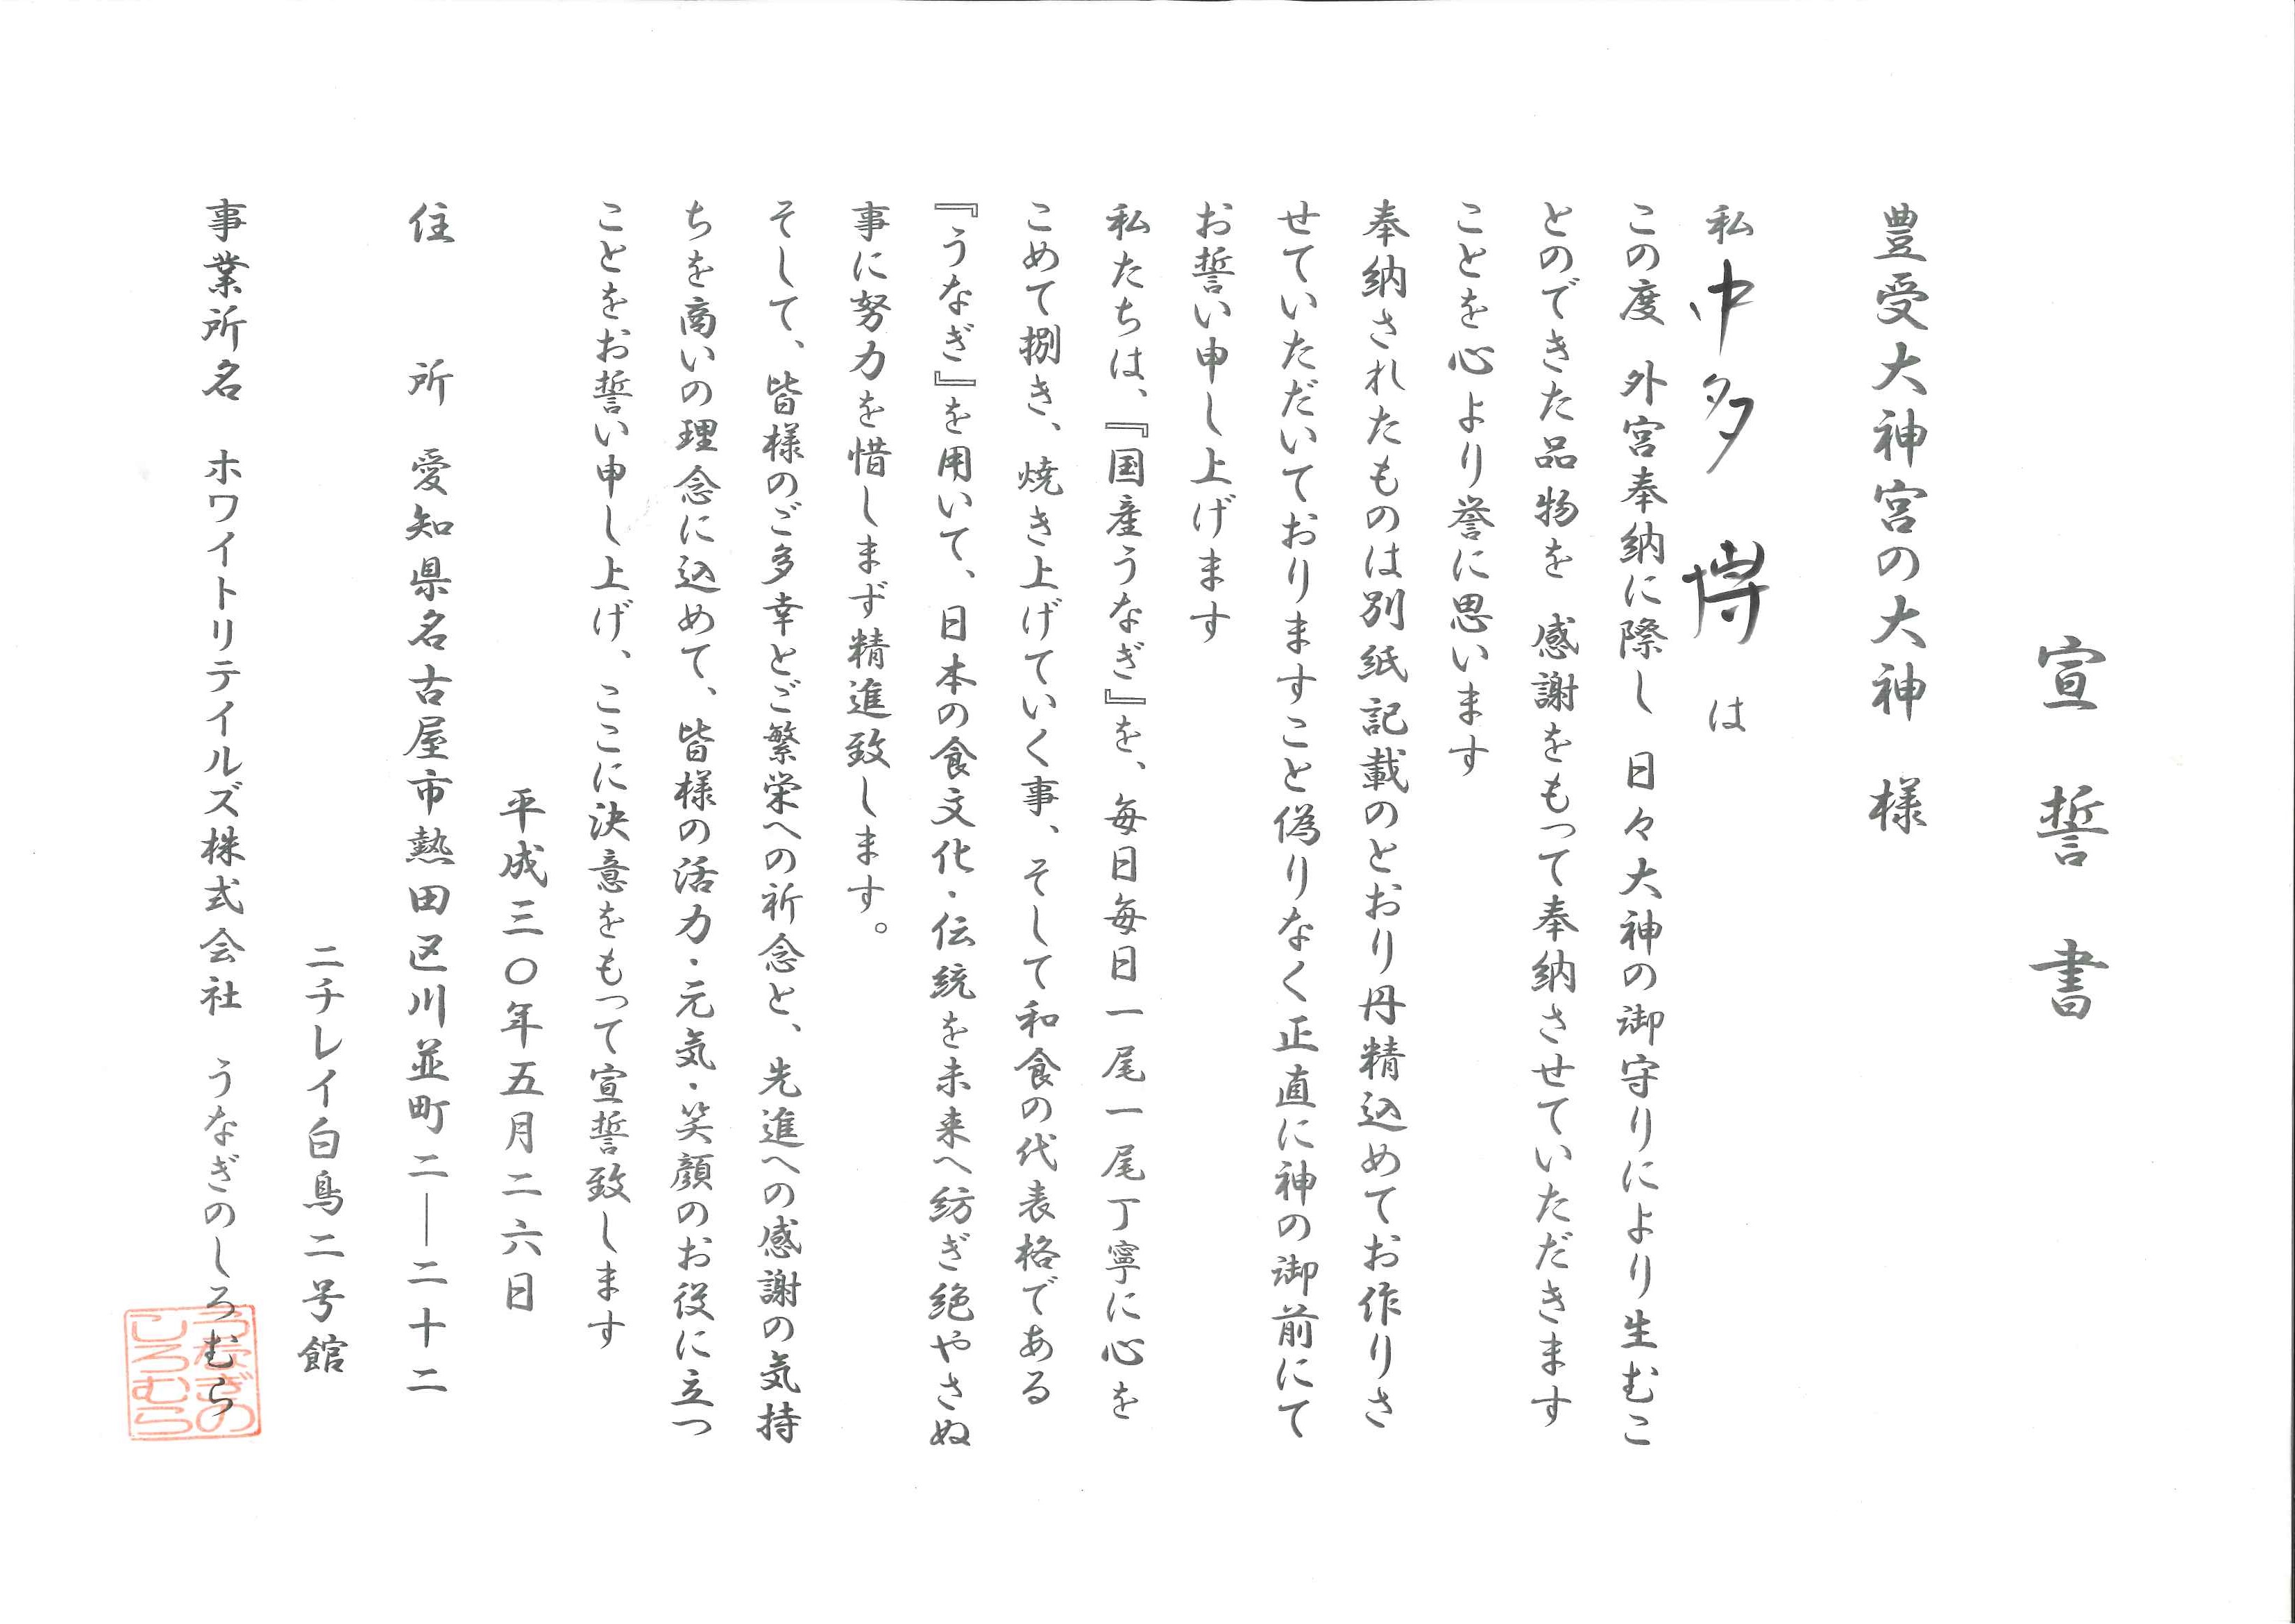 宣誓書
豊受大神宮の大神 様
私 中多 博 は
この度 外宮奉納に際し 日々大神の御守りにより生むこ
とのできた品物を 感謝をもって奉納させていただきます
ことを心より誉に思います
奉納されたものは別紙記載のとおり丹精込めてお作りさ
せていただいておりますこと偽りなく正直に神の御前にて
お誓い申し上げます
私たちは、『国産うなぎ』を、毎日毎日一尾一尾丁寧に心を
こめて捌き、焼き上げていく事、そして和食の代表格である
『うなぎ』を用いて、日本の食文化・伝統を未来へ紡ぎ絶やさぬ
事に努力を惜しまず精進致します。
そして、皆様のご多幸とご繁栄への祈念と、先進への感謝の気持
ちを商いの理念に込めて、皆様の活力・元気・笑顔のお役に立つ
ことをお誓い申し上げ、ここに決意をもって宣誓致します
平成三〇年五月二六日
住 所 愛知県名古屋市熱田区川並町二―二十二
ニチレイ白鳥二号館
事業所名 ホワイトリテイルズ株式会社 うなぎのしろむら
うなぎの
しろむら